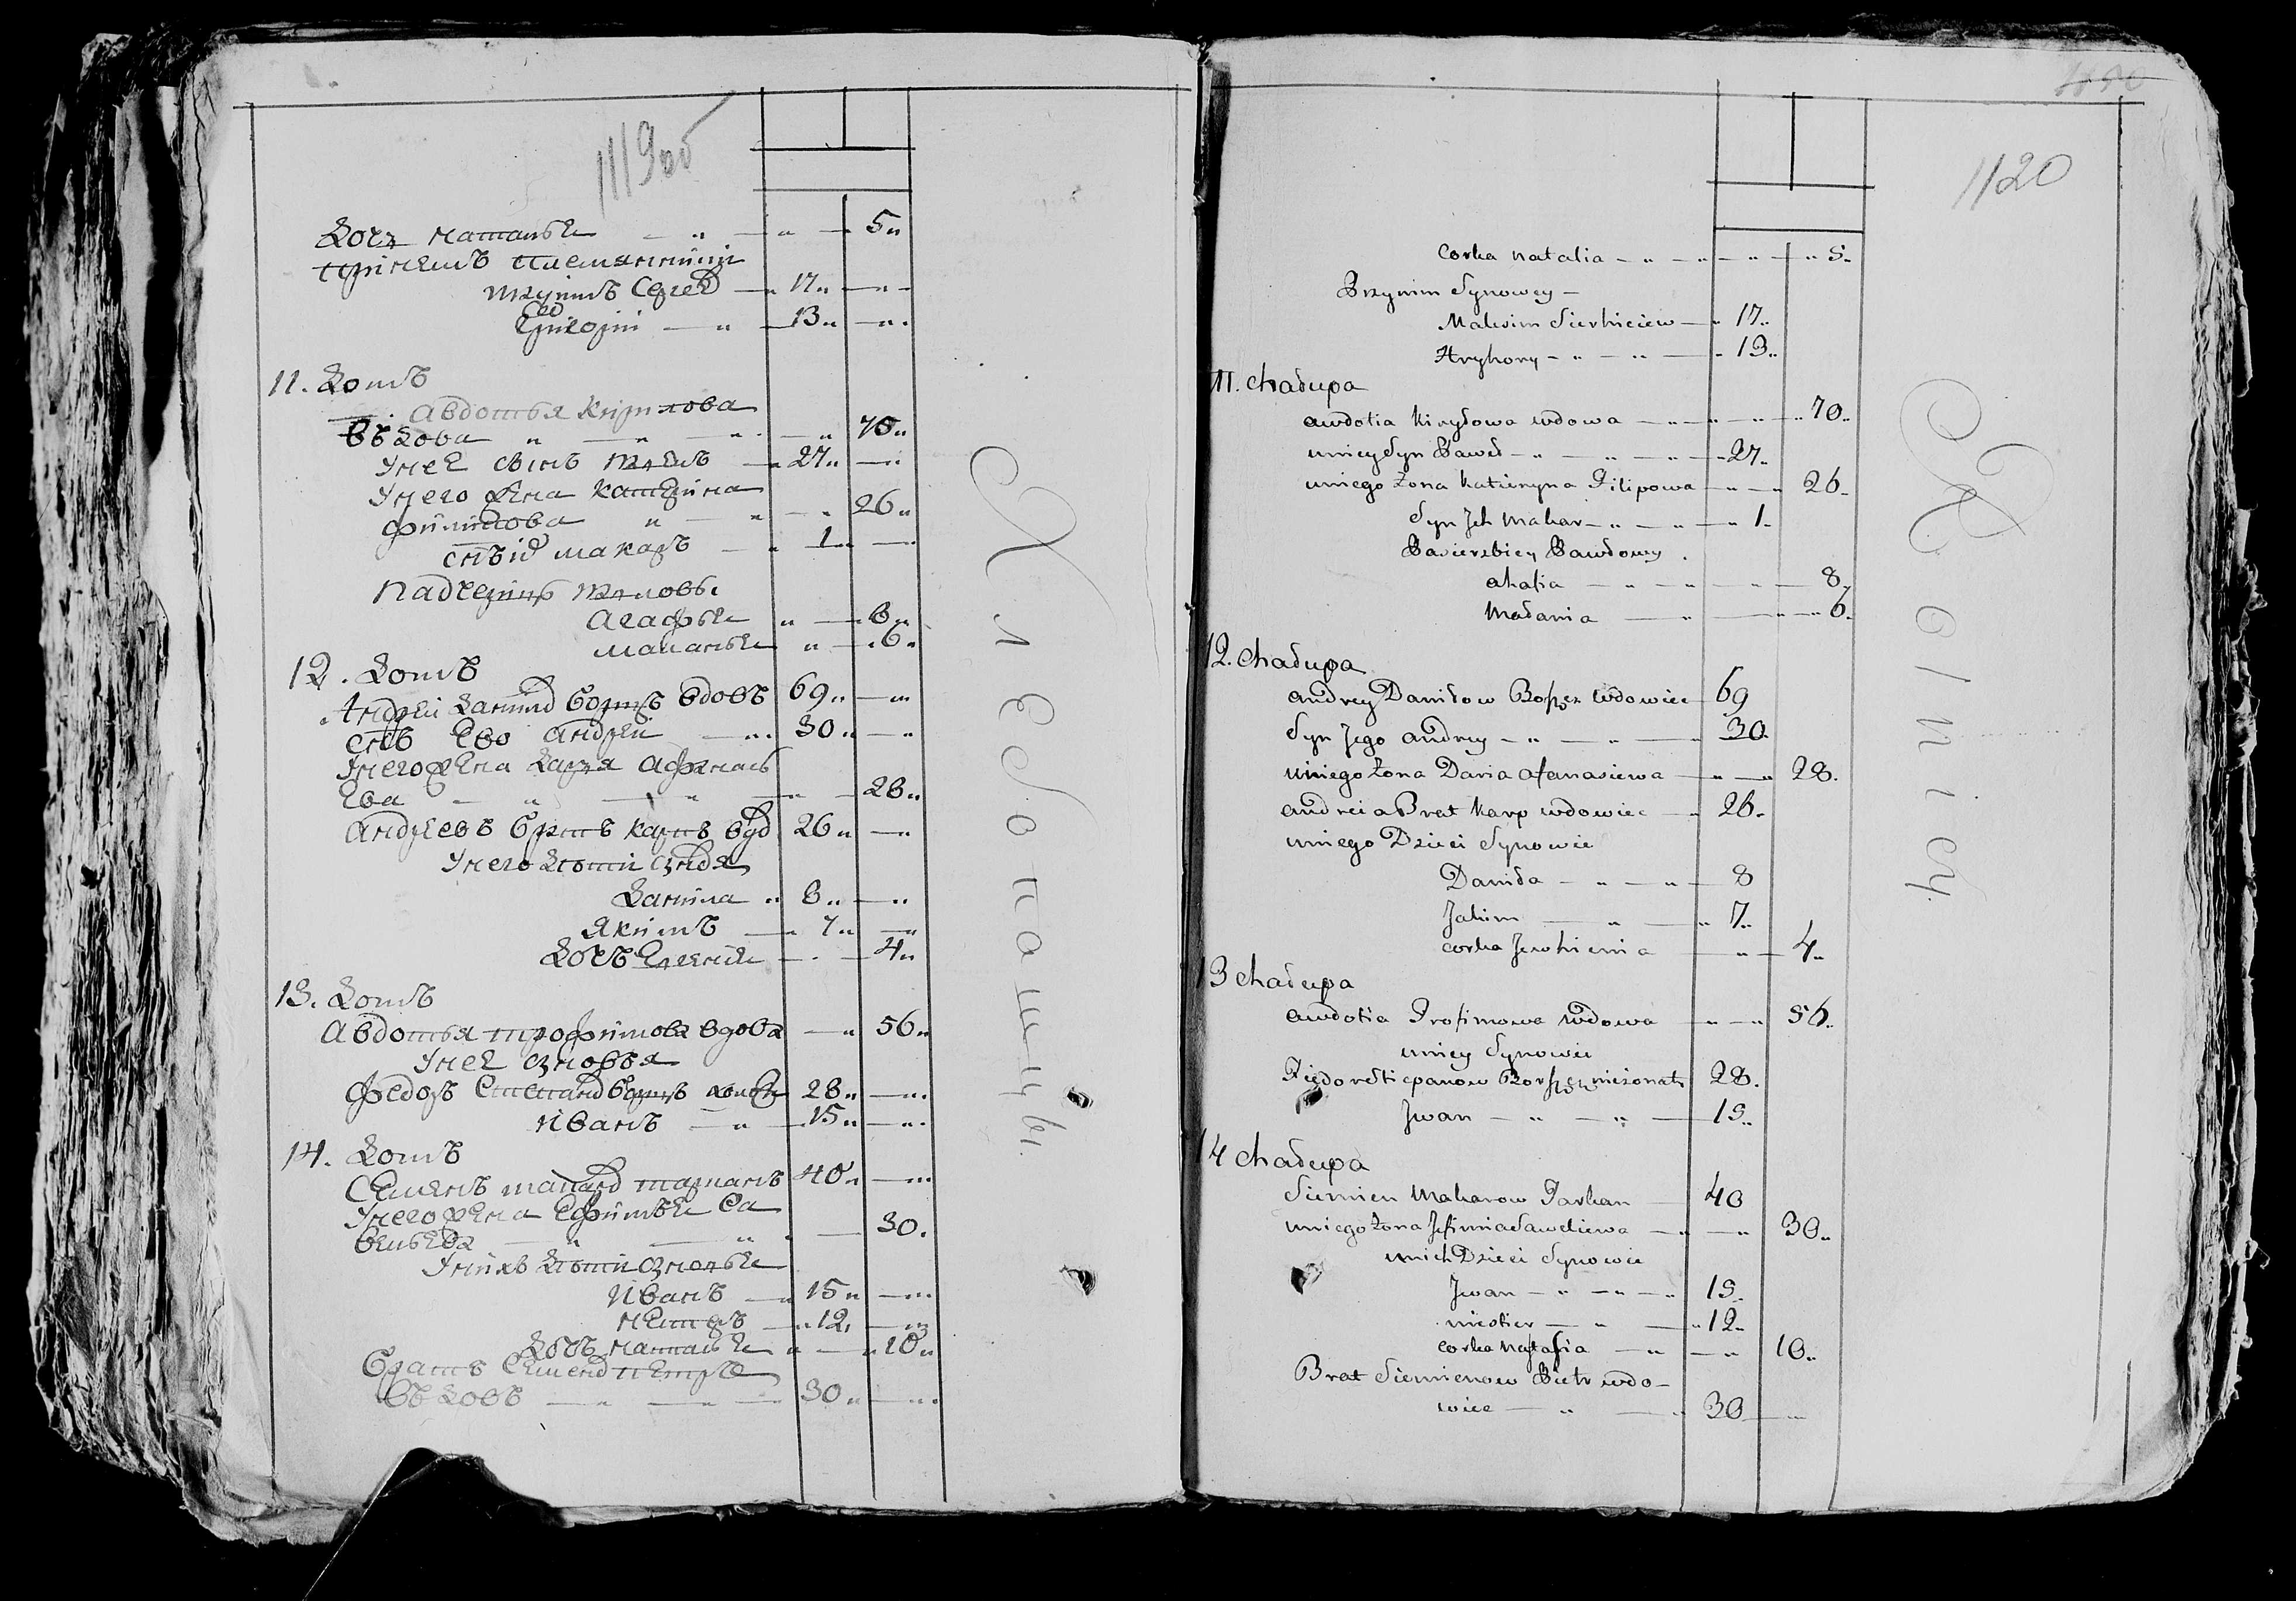 1119 об
Дочь Наталья 5
Приемъ племянники
Максимъ Сергеев 17
Григорий 13
11. Домъ
Авдотья Кирилова
въдова 70
Унее сынъ Павелъ 27
Унего жена Катерина
Филипова 26
сынъ их Макаръ 1
Падчерицы Павловы
Агафья 8
Маланья 6
12. Домъ
Андрей Данилов Борщъ вдовъ 69
Снъ Ево Андрей 30
Унего жена Дарья Афанась
Ева 28
Андреевъ братъ Карпъ вдо 26
Унего Дети сыновя
Данила 8
Якимъ 7
Дочь 4
13. Домъ
Авдотья Трофимова вдова 56
Унее сыновья
Федоръ Степанов Борщъ 28
Иванъ 15
14. Домъ
Семенъ Макаров Тарканъ 40
Унего жена Ефимья Са
вельева 30
Унихъ Дети сыновья
Иванъ 15
Нестеръ 12
Дочь Наталья 10
Братъ Семенов Петръ
въдовъ 30
Хлебопашцы
1120
Corka Natalia 5
Przyim Synowcy
Maksim Sierhieiew 17
Hryhory 13
11. Chałupa
Awdotia Kiryłowa wdowa 70
uniey Syn Paweł 27
uniego Żona Katieryna Filipowa 26
Syn Jch Makar 1
Pasierzbicy Pawłowy
Ahafia 8
Małania 6
12. Chałupa
Andrey Daniłow Borszcz wdowiec 69
Syn Jego Andrey 30
uniego Żona Daria Afanasiewa 28
Andreia Brat Karp wdowiec 26
uniego Dzieci Synowie
Daniła 8
Jakim 7
corka Jewhienia 4
13 Chałupa
Awdotia Trofimowa wdowa 56
uniey Synowie
Fiedor Stiepanow Borszcz nieżonaty 28
Jwan 15
14 Chałupa
Siemien Makarow Tarkan 40
uniego Żona Jefimia Saweliewa 30
unich Dzieci Synowie
Jwan 15
Niestier 12
corka Natalia 10
Brat Siemienow Piotr wdo-
wiec 30
Rolnicy